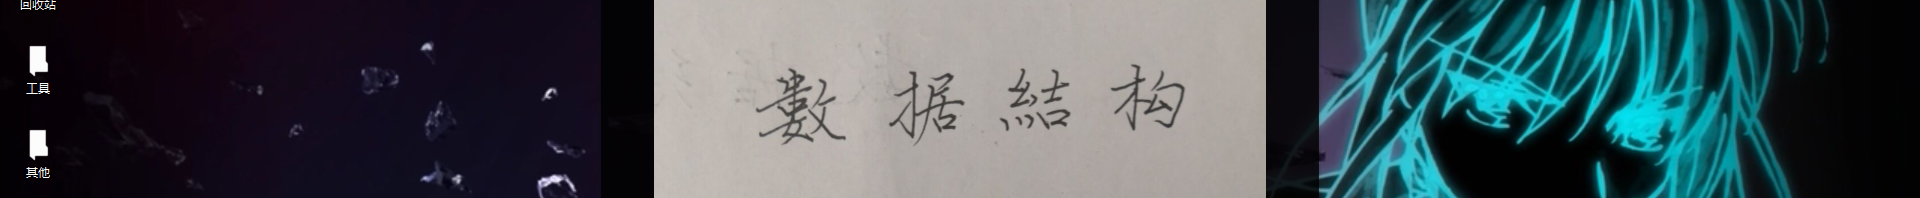 回收站
工具
其他
數据結构